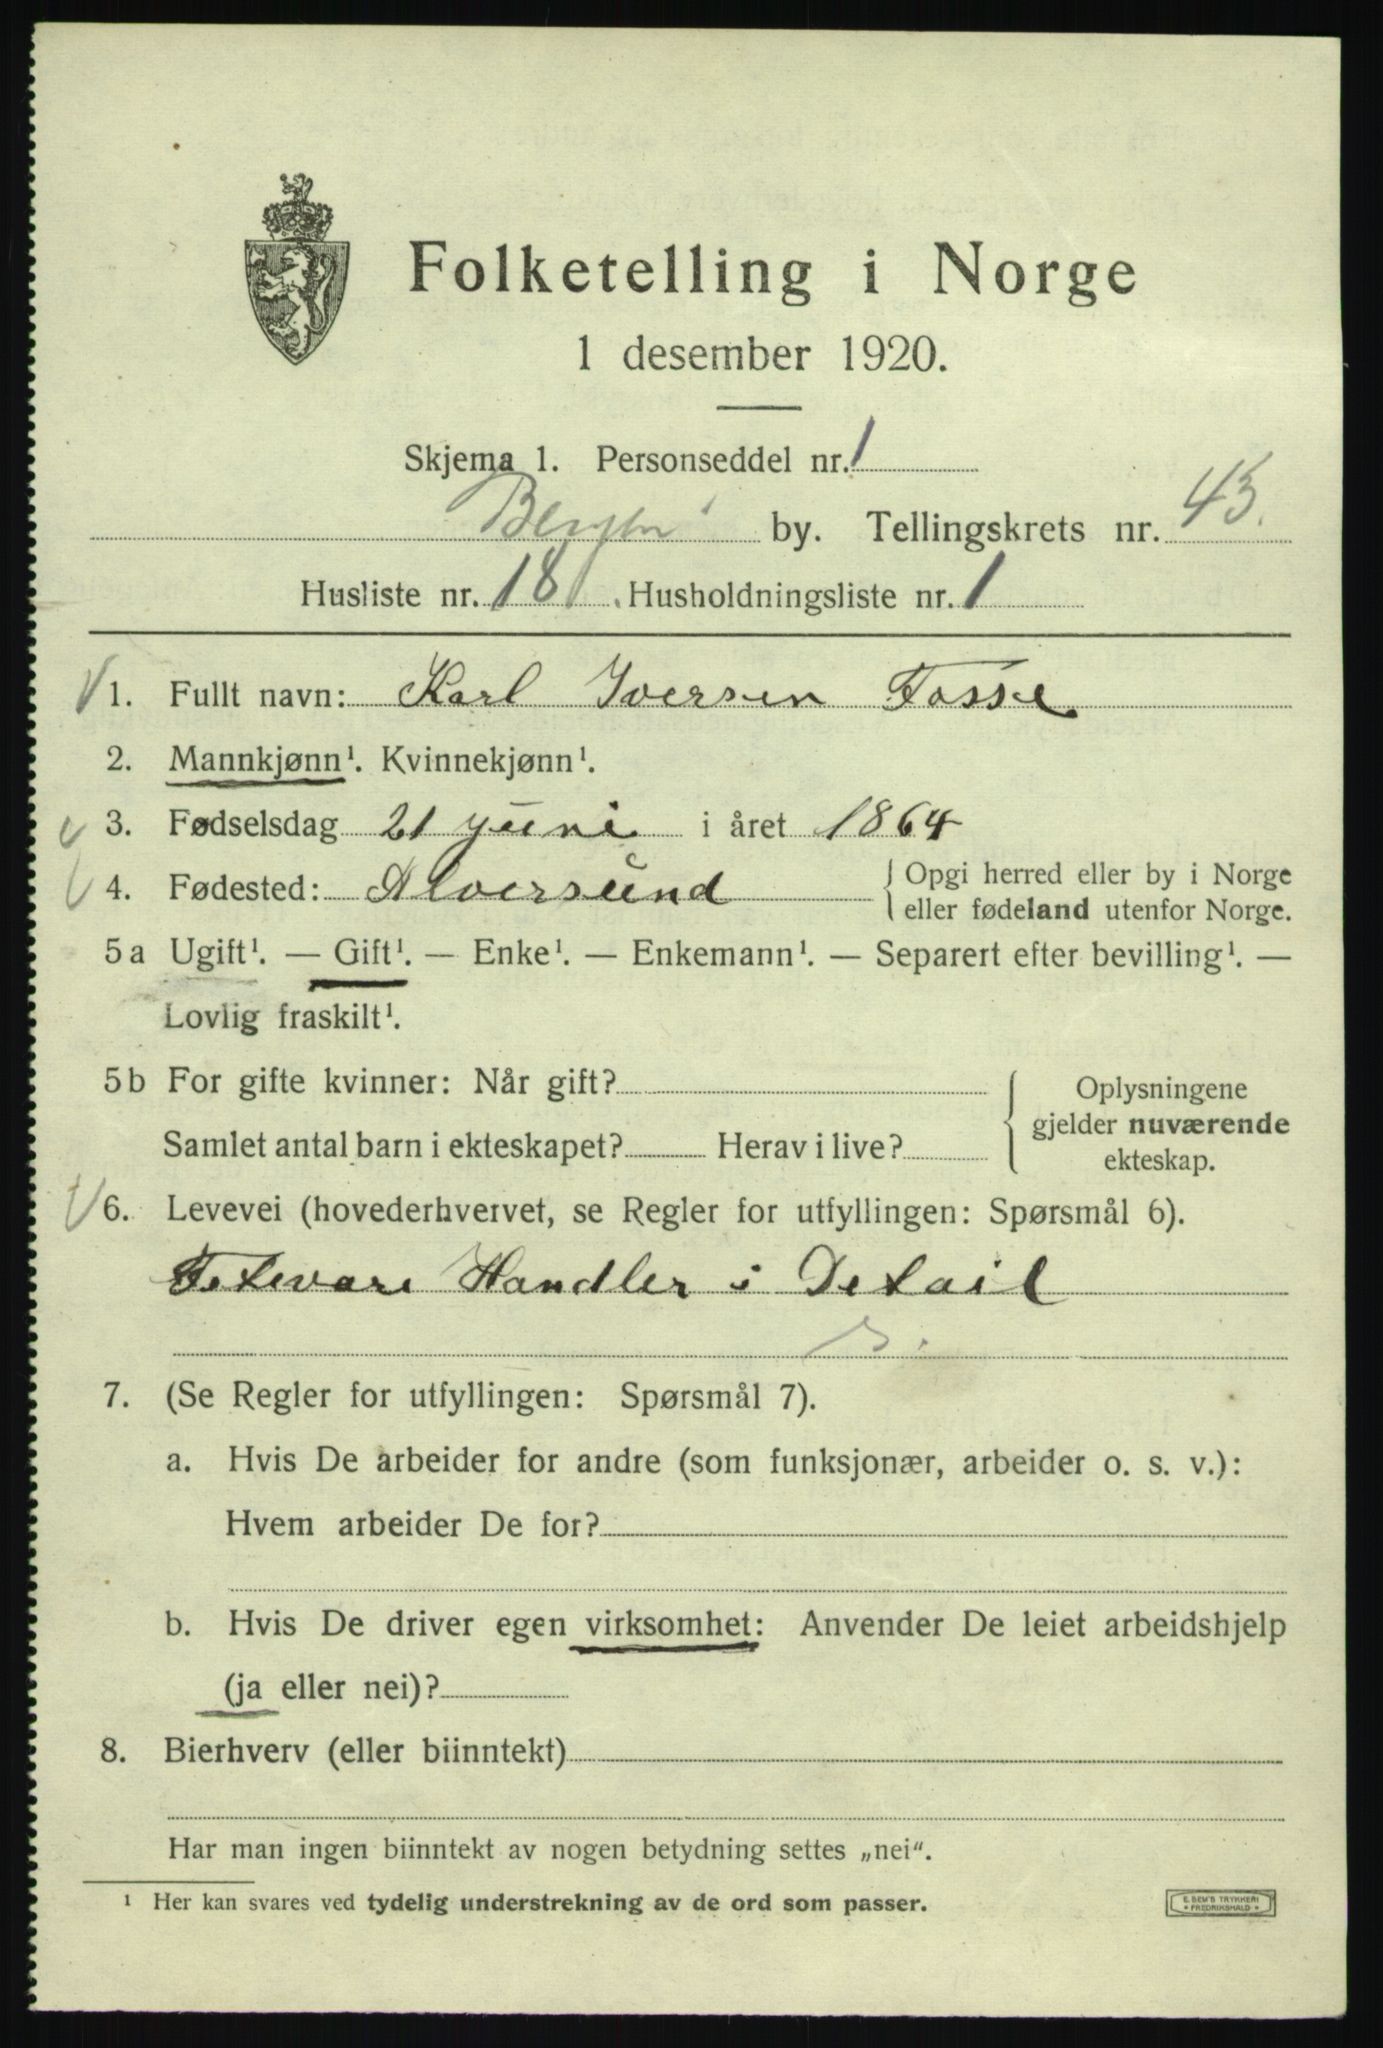 Folketelling i Norge
1 desember 1920.
Skjema 1. Personseddel nr. 1
Bergen by. Tellingskrets nr. 43.
Husliste nr. 18. Husholdningsliste nr. 1
1. Fullt navn: Karl Iversen Fosse
2. Mannkjønn¹. Kvinnekjønn¹.
3. Fødselsdag 21 juni i året 1864
4. Fødested: Alversund { Opgi herred eller by i Norge
eller fødeland utenfor Norge.
5a Ugift¹. — Gift¹. — Enke¹. — Enkemann¹. — Separert efter bevilling¹. —
Lovlig fraskilt¹.
5b For gifte kvinner: Når gift?
Samlet antal barn i ekteskapet? Herav i live?
{ Oplysningene
gjelder nuværende
ekteskap.
6. Levevei (hovederhvervet, se Regler for utfyllingen: Spørsmål 6).
Fetevare Handler i Detail
7. (Se Regler for utfyllingen: Spørsmål 7).
a. Hvis De arbeider for andre (som funksjonær, arbeider o. s. v.):
Hvem arbeider De for?
b. Hvis De driver egen virksomhet: Anvender De leiet arbeidshjelp
(ja eller nei)?
8. Bierhverv (eller biinntekt)
Har man ingen biinntekt av nogen betydning settes „nei“.
¹ Her kan svares ved tydelig understrekning av de ord som passer.
E. SEM'S TRYKKERI
FREDRIKSHALD